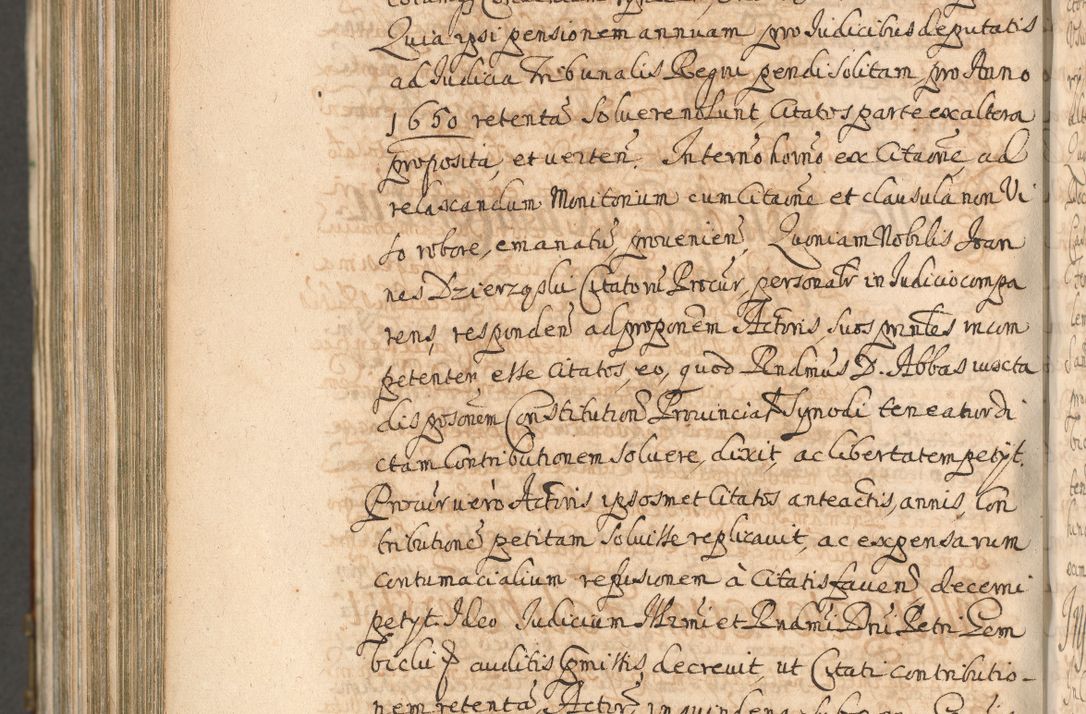 Quia ipsi pensionem annuam pro Iudicibus deputatis
ad Iudicia Tribunalis Regni pendi solitam, pro Anno
1650 retentã soluere nolunt, Citatos parte ex altera
proposita, et uerteñ. In termo horno ex Citaone ad
relaxandum Monitorium cum Citaone et clausula non Vi
so robore, emanatũ, prouenieñ, Quoniam Nobilis Joan
nes Dzierząski Citatoru Procur, personalr in Iudicio compa
rens, respondeñ ad proponem Actoris, suos prntes incom
petenter esse Citatos, eo, quod Rndmus D. Abbas iuxta
disposonem Constitution Prouincial Synodi teneatur di
ctam Contributionem soluere, dixit, ac libertatem petijt.
Procur uero Actoris ipsosmet Citatos anteactis, annis, Con
tributione petitam soluisse replicauit, ac expensarum
contumacialium refusionem à Citatis faueñ decerni
petijt. Ideo Iudicium Illrmi et Rndmi Dni Petri Gem
bicki auditis pmissis, decreuit, ut Citati contributio-
nem retentã, Actori, in quindena